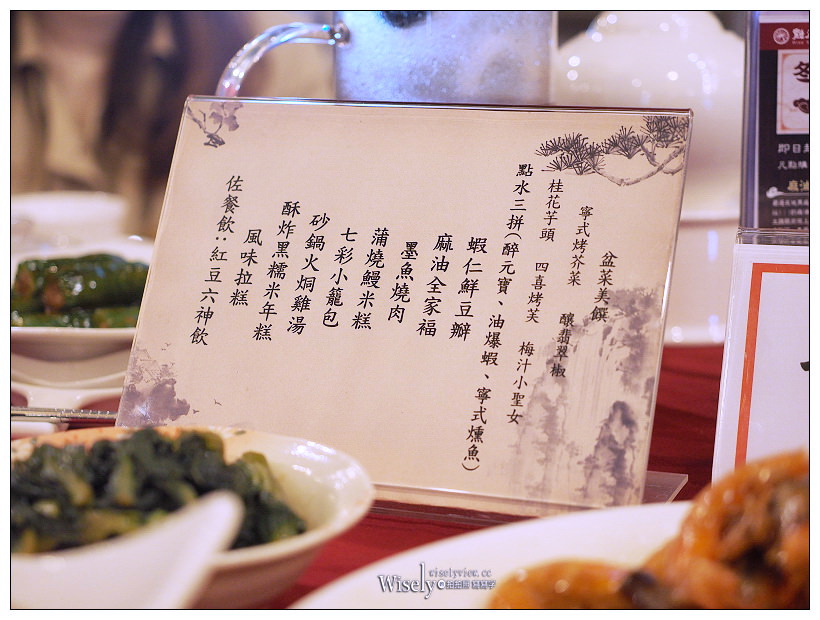 盆菜美饌
寧式烤芥菜 釀翡翠椒
桂花芋頭 四喜烤芙 梅汁小聖女
點水三拼(醉元寶、油爆蝦、寧式燻魚)
蝦仁鮮豆瓣
麻油全家福
墨魚燒肉
蒲燒鰻米糕
七彩小籠包
砂鍋火焗雞湯
酥炸黑糯米年糕
風味拉糕
佐餐飲:紅豆六神飲
冬
即日起
凡點購
麻油
Wisely
wiselyview.cc
拍拍照 寫寫字